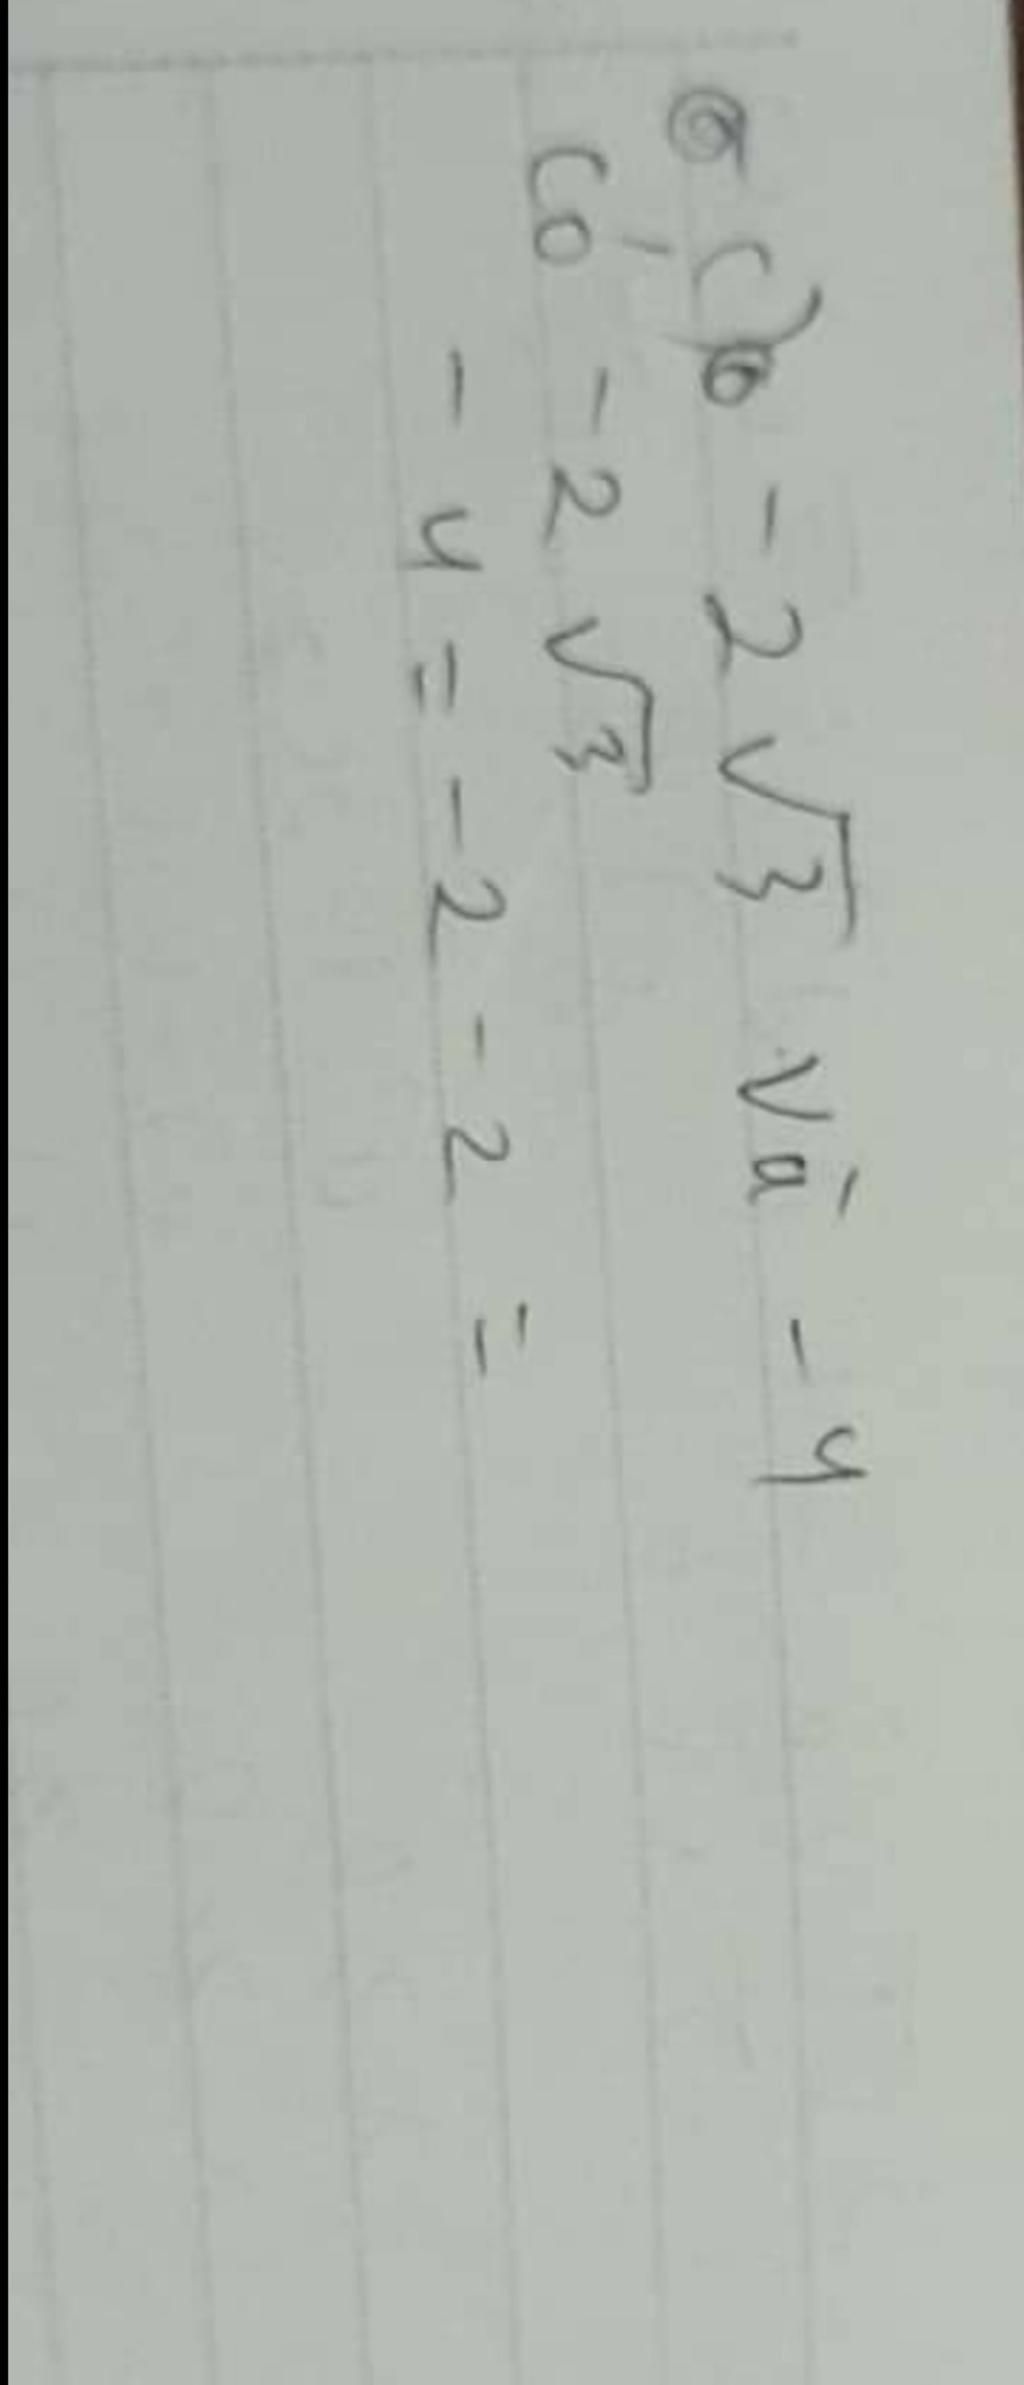 c) -2√3 và -4
Có -2√3
-4 = -2 - 2 =